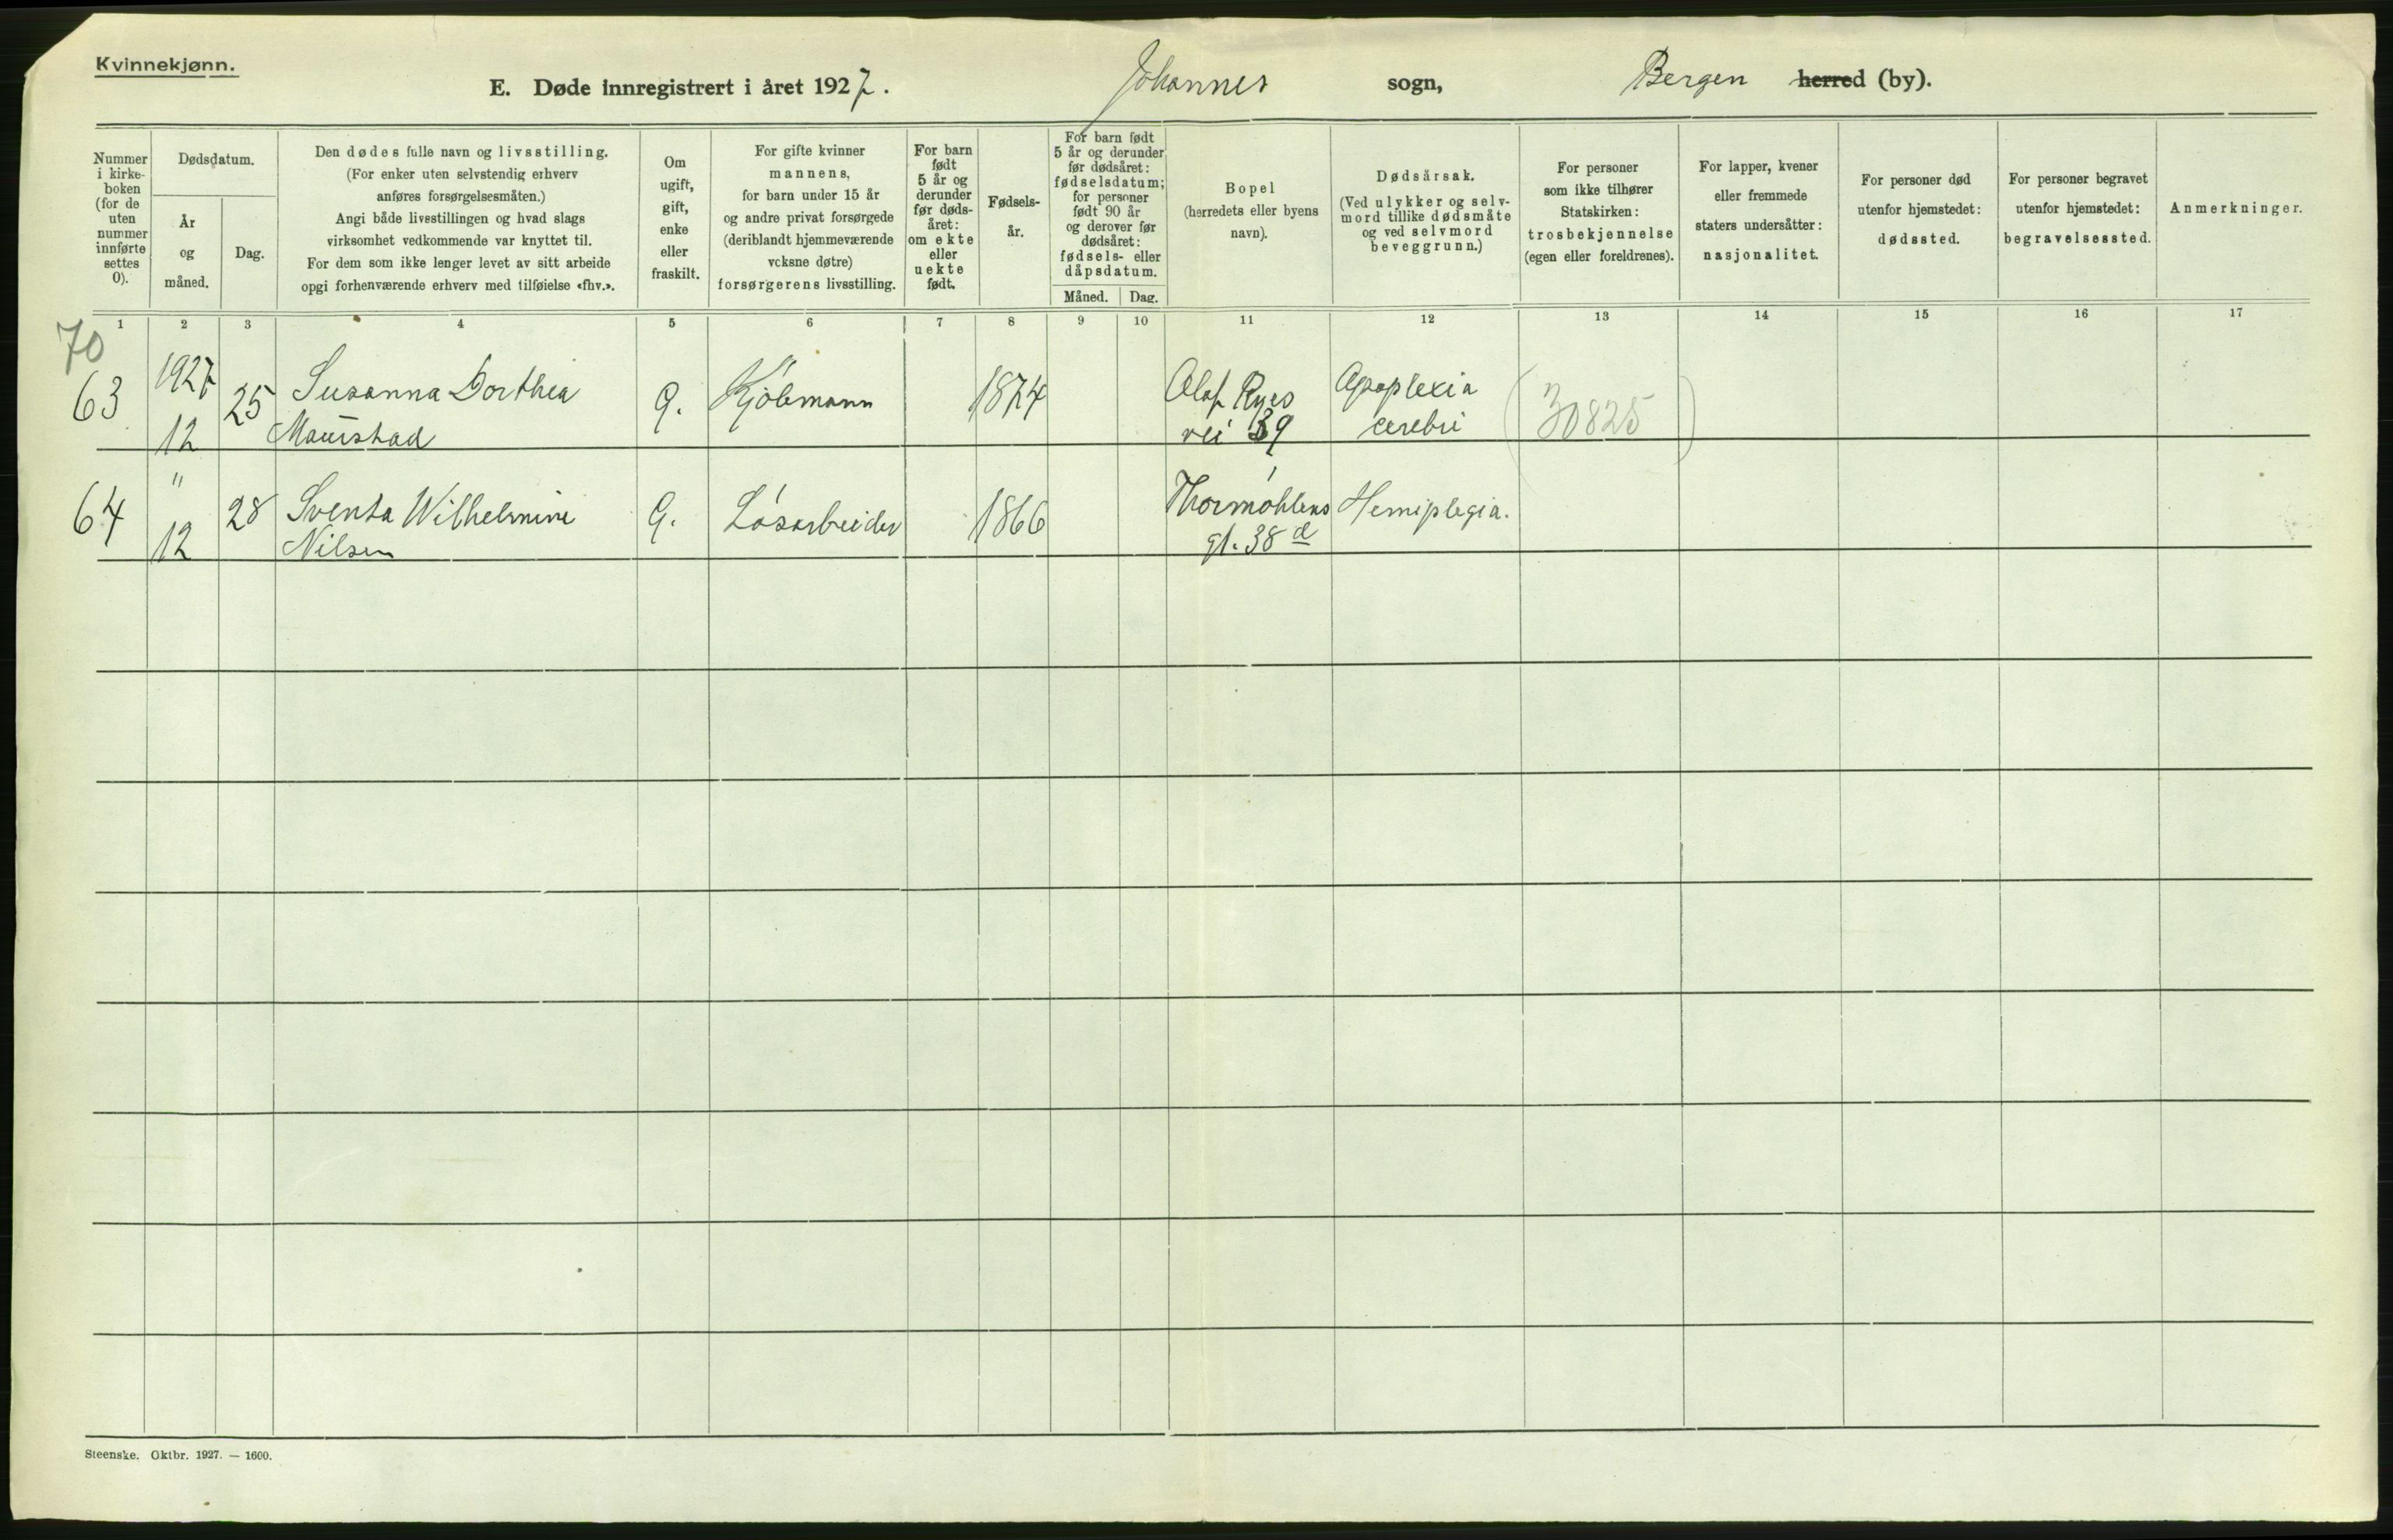 Kvinnekjønn.
E. Døde innregistrert i året 1927. Johannes sogn, Bergen herred (by).
Nummer i kirke-boken (for de uten nummer innførte settes 0).
Dødsdatum.
År og måned.
Dag.
Den dødes fulle navn og livsstilling.
(For enker uten selvstendig erhverv
anføres forsørgelsesmåten.)
Angi både livsstillingen og hvad slags
virksomhet vedkommende var knyttet til.
For dem som ikke lenger levet av sitt arbeide
opgi forhenværende erhverv med tilføielse «fhv.».
Om
ugift,
gift,
enke
eller
fraskilt.
For gifte kvinner
mannens,
for barn under 15 år
og andre privat forsørgede
(deriblandt hjemmeværende
voksne døtre)
forsørgerens livsstilling.
For barn
født
5 år og
derunder
før døds-
året:
om ekte
eller
uekte
født.
Fødsels-
år.
For barn født
5 år og derunder
før dødsåret:
fødselsdatum;
for personer
født 90 år
og derover før
dødsåret:
fødsels- eller
dåpsdatum.
Måned. Dag.
Bopel
(herredets eller byens
navn).
Dødsårsak.
(Ved ulykker og selv-
mord tillike dødsmåte
og ved selvmord
beveggrunn.)
For personer
som ikke tilhører
Statskirken:
trosbekjennelse
(egen eller foreldrenes).
For lapper, kvener
eller fremmede
staters undersåtter:
nasjonalitet.
For personer død
utenfor hjemstedet:
dødssted.
For personer begravet
utenfor hjemstedet:
begravelsessted.
Anmerkninger.
1 2 3 4 5 6 7 8 9 10 11 12 13 14 15 16 17
70
63 1927 25 Susanna Dorthea G. Kjöbmann 1874 Olaf Ryes Apoplexia (30825)
12 Maurstad vei 39 cerebri
64 " 28 Sventa Wilhelmine G. Lösarbeider 1866 Thormöhlens Hemiplegia.
12 Nilsen gt. 38 d
Steenske. Oktbr. 1927. — 1600.